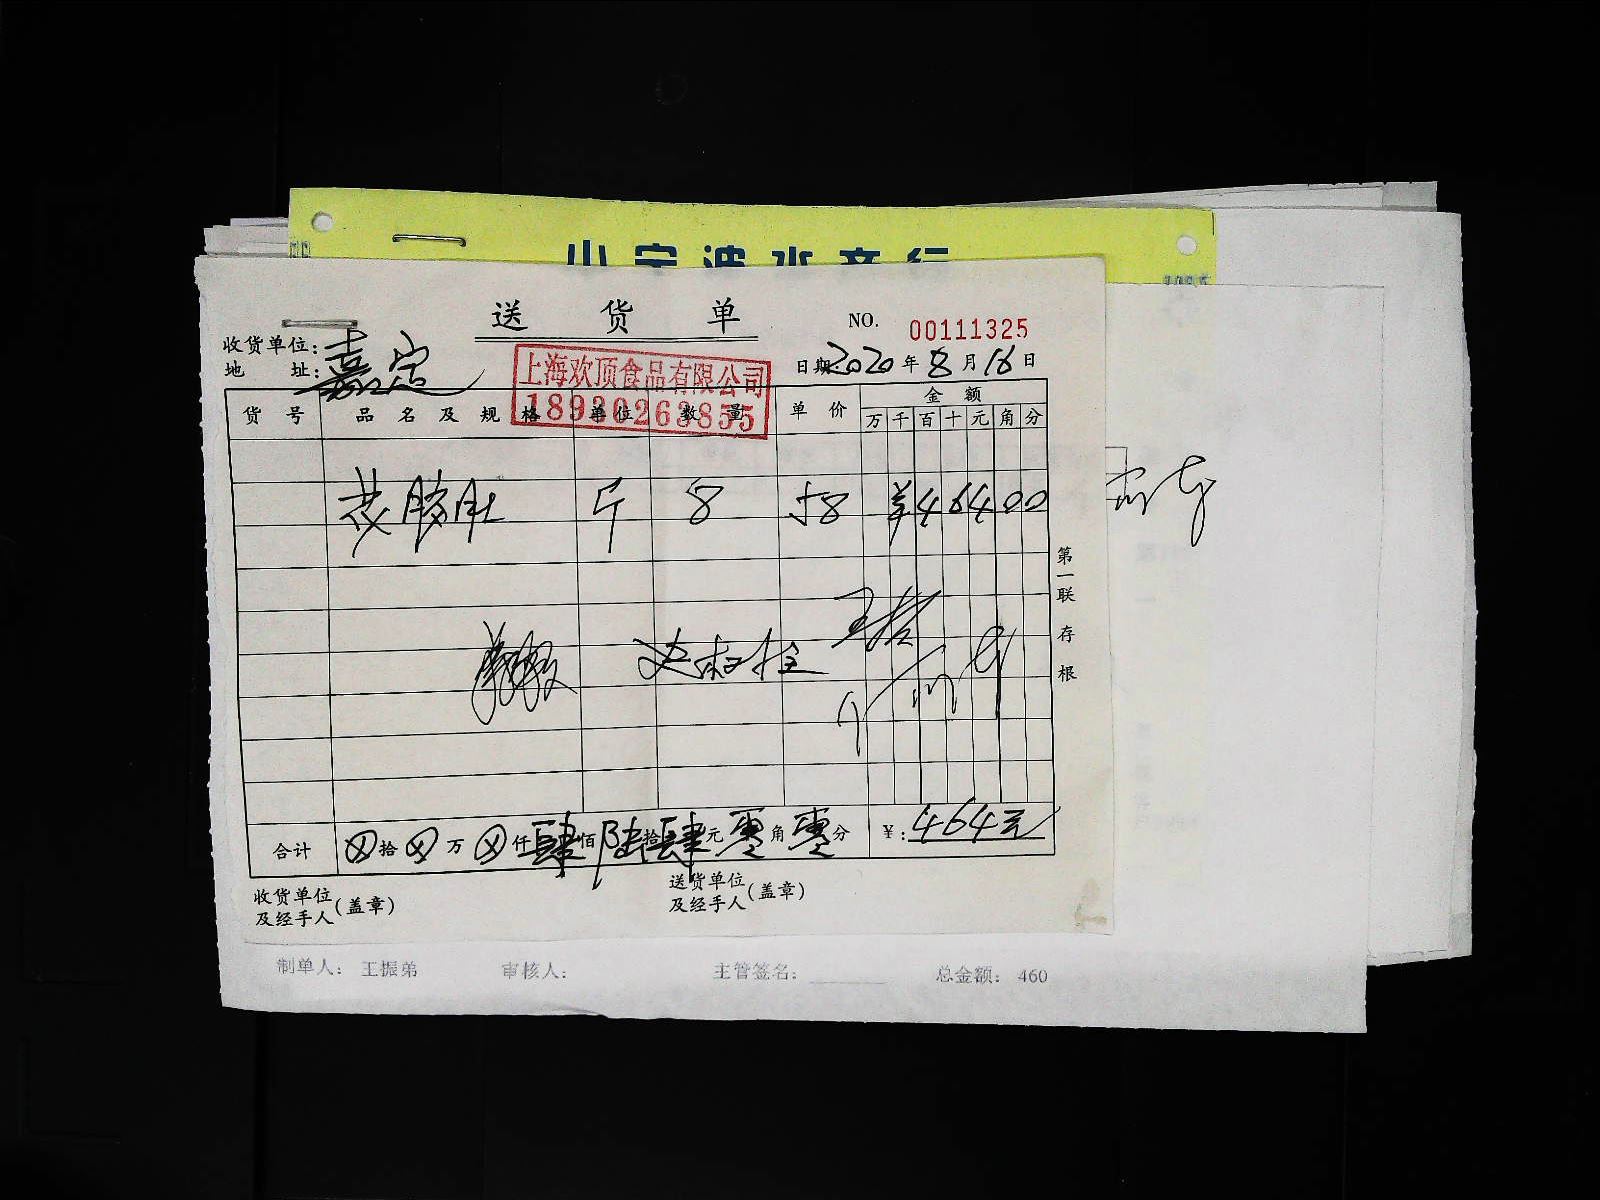 小宁波水产行
送 货 单
NO. 00111325
收货单位:
地 址: 嘉定
日期 2020 年 8 月 16 日
上海欢顶食品有限公司
18930263855
货 号 品 名 及 规 格 单位 数 量 单 价 金 额
万 千 百 十 元 角 分
花胶肚 斤 8 58 ¥ 4 6 4 0 0
第一联 存根
合计 ⊗ 拾 ⊗ 万 ⊗ 仟 肆 佰 陆 拾 肆 元 零 角 零 分 ¥: 464元
收货单位
及经手人(盖章)
送货单位
及经手人(盖章)
制单人: 王振弟 审核人: 主管签名: 总金额: 460